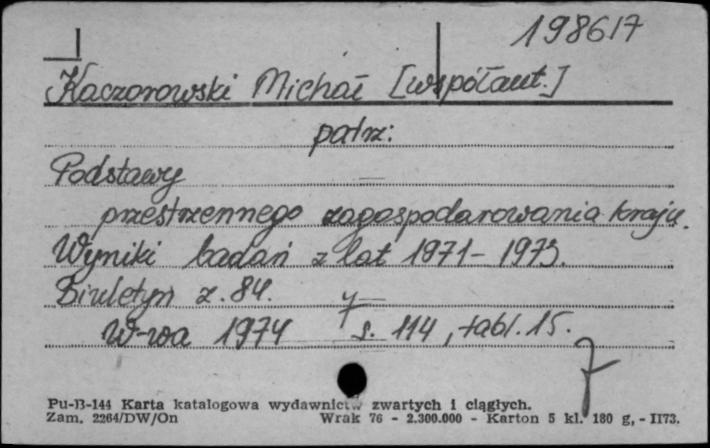 198617
Kaczorowski Michał [współaut.]
patrz:
Podstawy
przestrzennego zagospodarowania kraju.
Wyniki badań z lat 1971-1973.
Biuletyn z. 84.
W-wa 1974 s. 114, tabl. 15.
Pu-B-144 Karta katalogowa wydawnictw zwartych i ciągłych.
Zam. 2264/DW/On Wrak 76 - 2.300.000 - Karton 5 kl. 180 g, - II73.